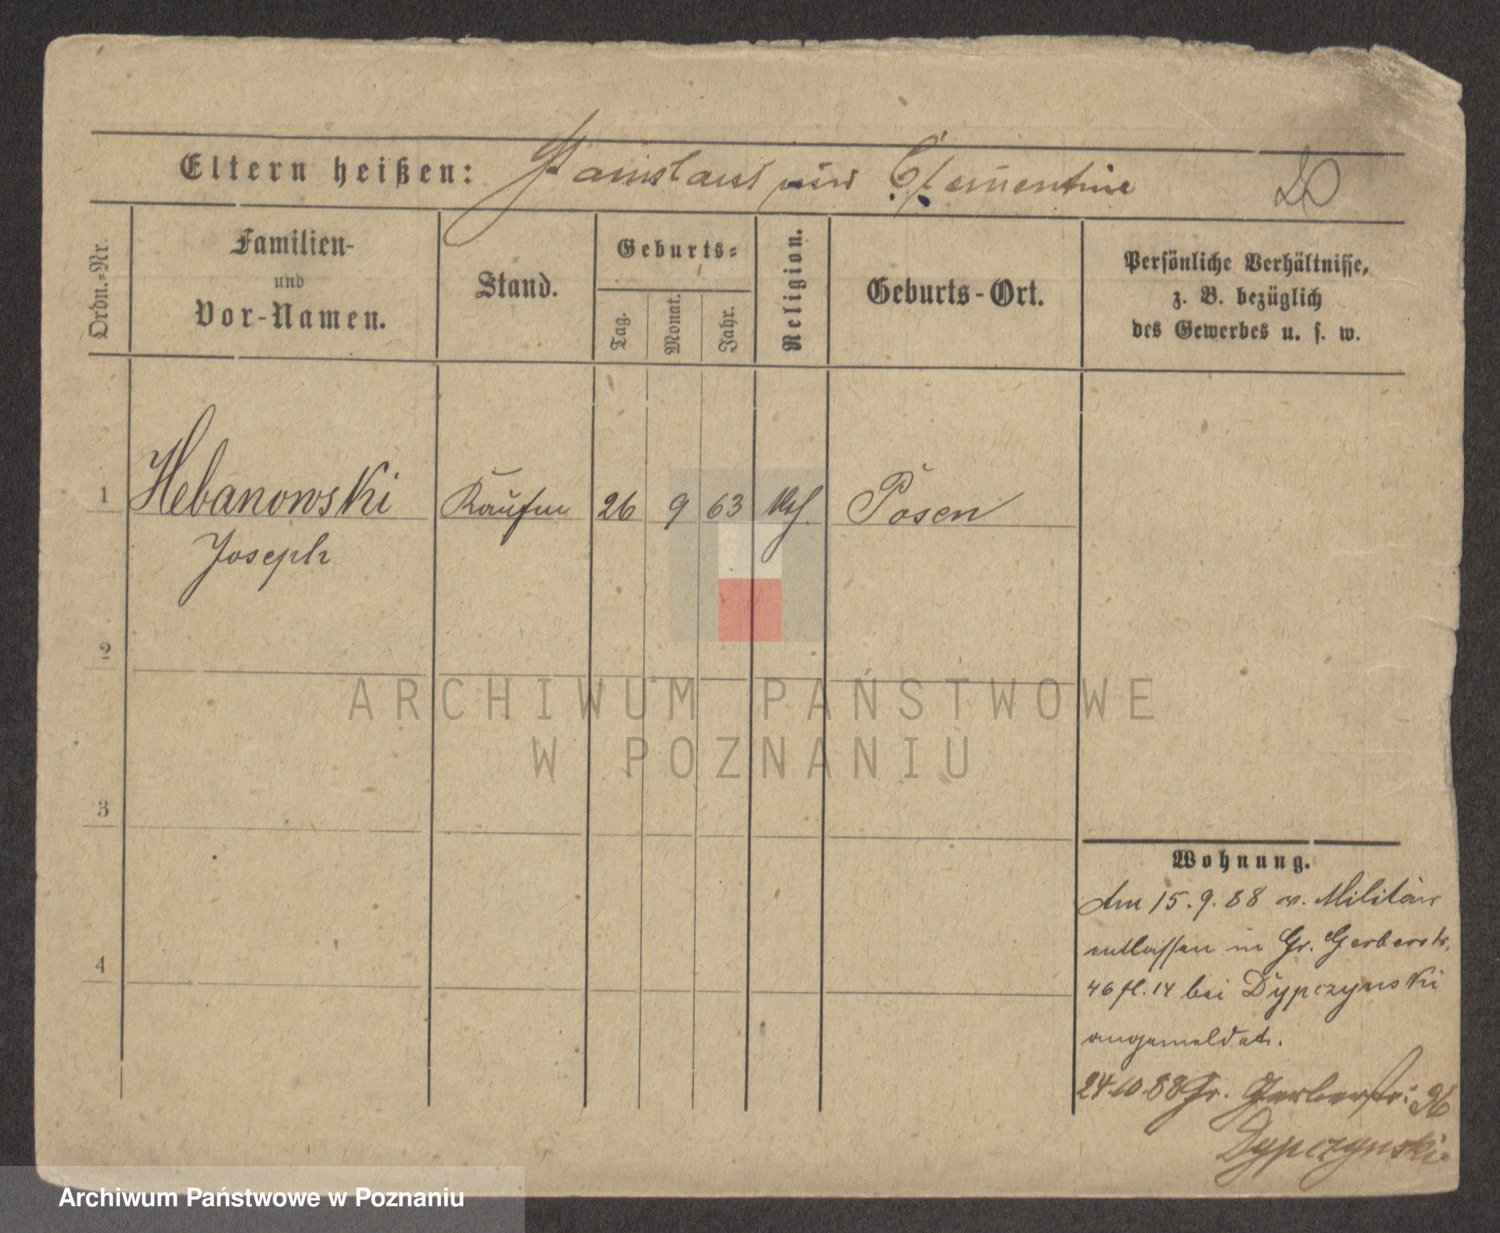 Eltern heißen: Stanislaus und Clementine
20
Ordn.-Nr.
Familien-
und
Vor-Namen.
Stand.
Geburts-
Tag.
Monat.
Jahr.
Religion.
Geburts-Ort.
Persönliche Verhältnisse,
z. B. bezüglich
des Gewerbes u. s. w.
1 Hebanowski Kaufm 26 9 63 Kth. Posen
Joseph
2
3
4
Wohnung.
Am 15.9.88 v. Militär
entlassen in Gr. Gerberstr.
46 fl. 14 bei Dypczynski
angemeldet.
24.10.88 Gr. Gerberstr. 36
Dypczynski
ARCHIWUM PAŃSTWOWE
W POZNANIU
Archiwum Państwowe w Poznaniu